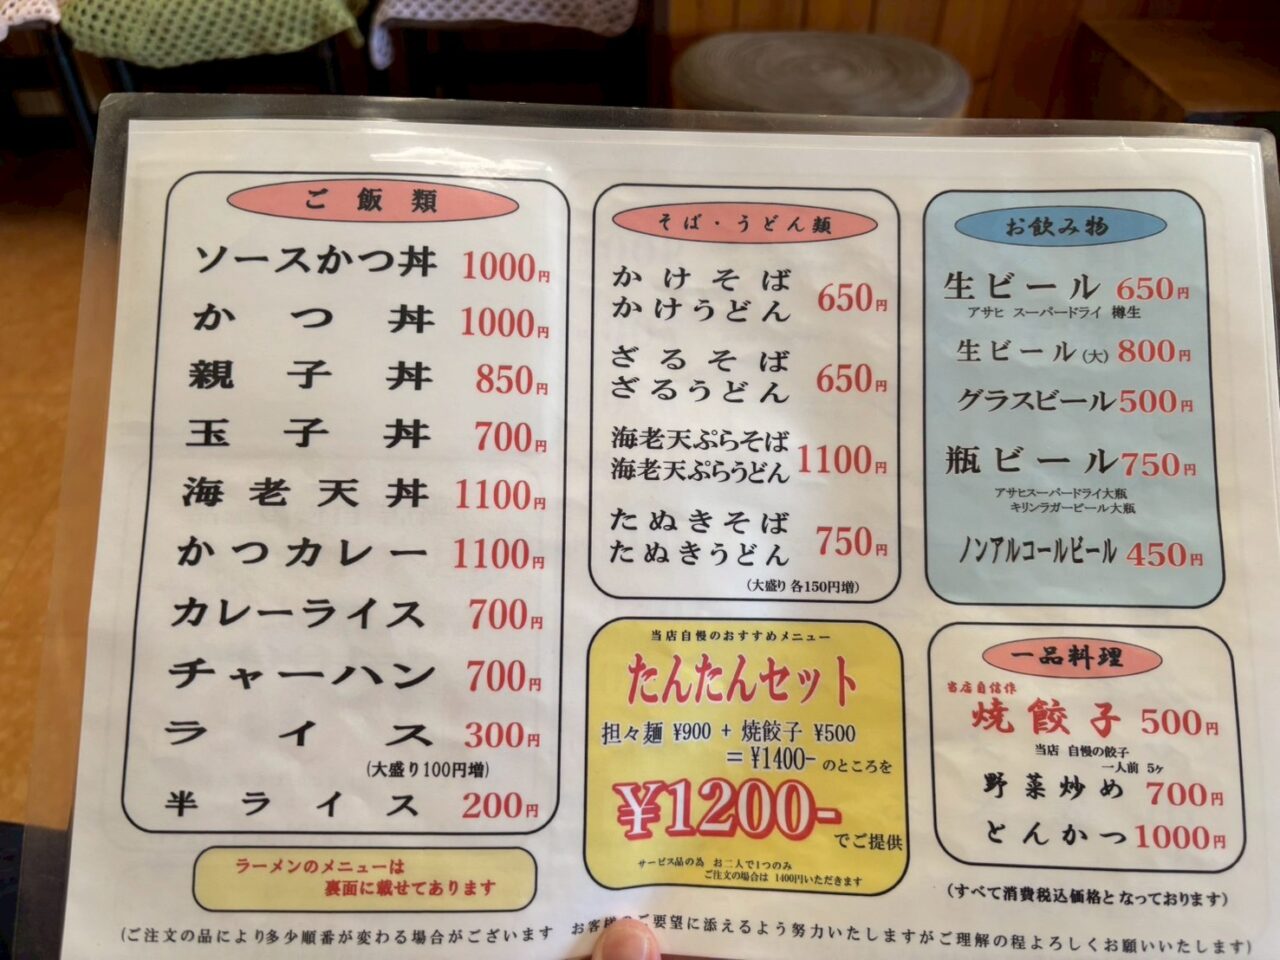 ご飯類
ソースかつ丼 1000円
かつ丼 1000円
親子丼 850円
玉子丼 700円
海老天丼 1100円
かつカレー 1100円
カレーライス 700円
チャーハン 700円
ライス 300円
(大盛り100円増)
半ライス 200円
ラーメンのメニューは
裏面に載せてあります
そば・うどん類
かけそば
かけうどん 650円
ざるそば
ざるうどん 650円
海老天ぷらそば
海老天ぷらうどん 1100円
たぬきそば
たぬきうどん 750円
(大盛り 各150円増)
当店自慢のおすすめメニュー
たんたんセット
担々麺 ¥900 + 焼餃子 ¥500
= ¥1400- のところを
¥1200- でご提供
サービス品の為 お二人で1つのみ
ご注文の場合は 1400円いただきます
お飲み物
生ビール 650円
アサヒ スーパードライ 樽生
生ビール(大) 800円
グラスビール 500円
瓶ビール 750円
アサヒスーパードライ大瓶
キリンラガービール大瓶
ノンアルコールビール 450円
一品料理
当店自信作
焼餃子 500円
当店 自慢の餃子
一人前 5ヶ
野菜炒め 700円
とんかつ 1000円
(すべて消費税込価格となっております)
(ご注文の品により多少順番が変わる場合がございます お客様のご要望に添えるよう努力いたしますがご理解の程よろしくお願いいたします)